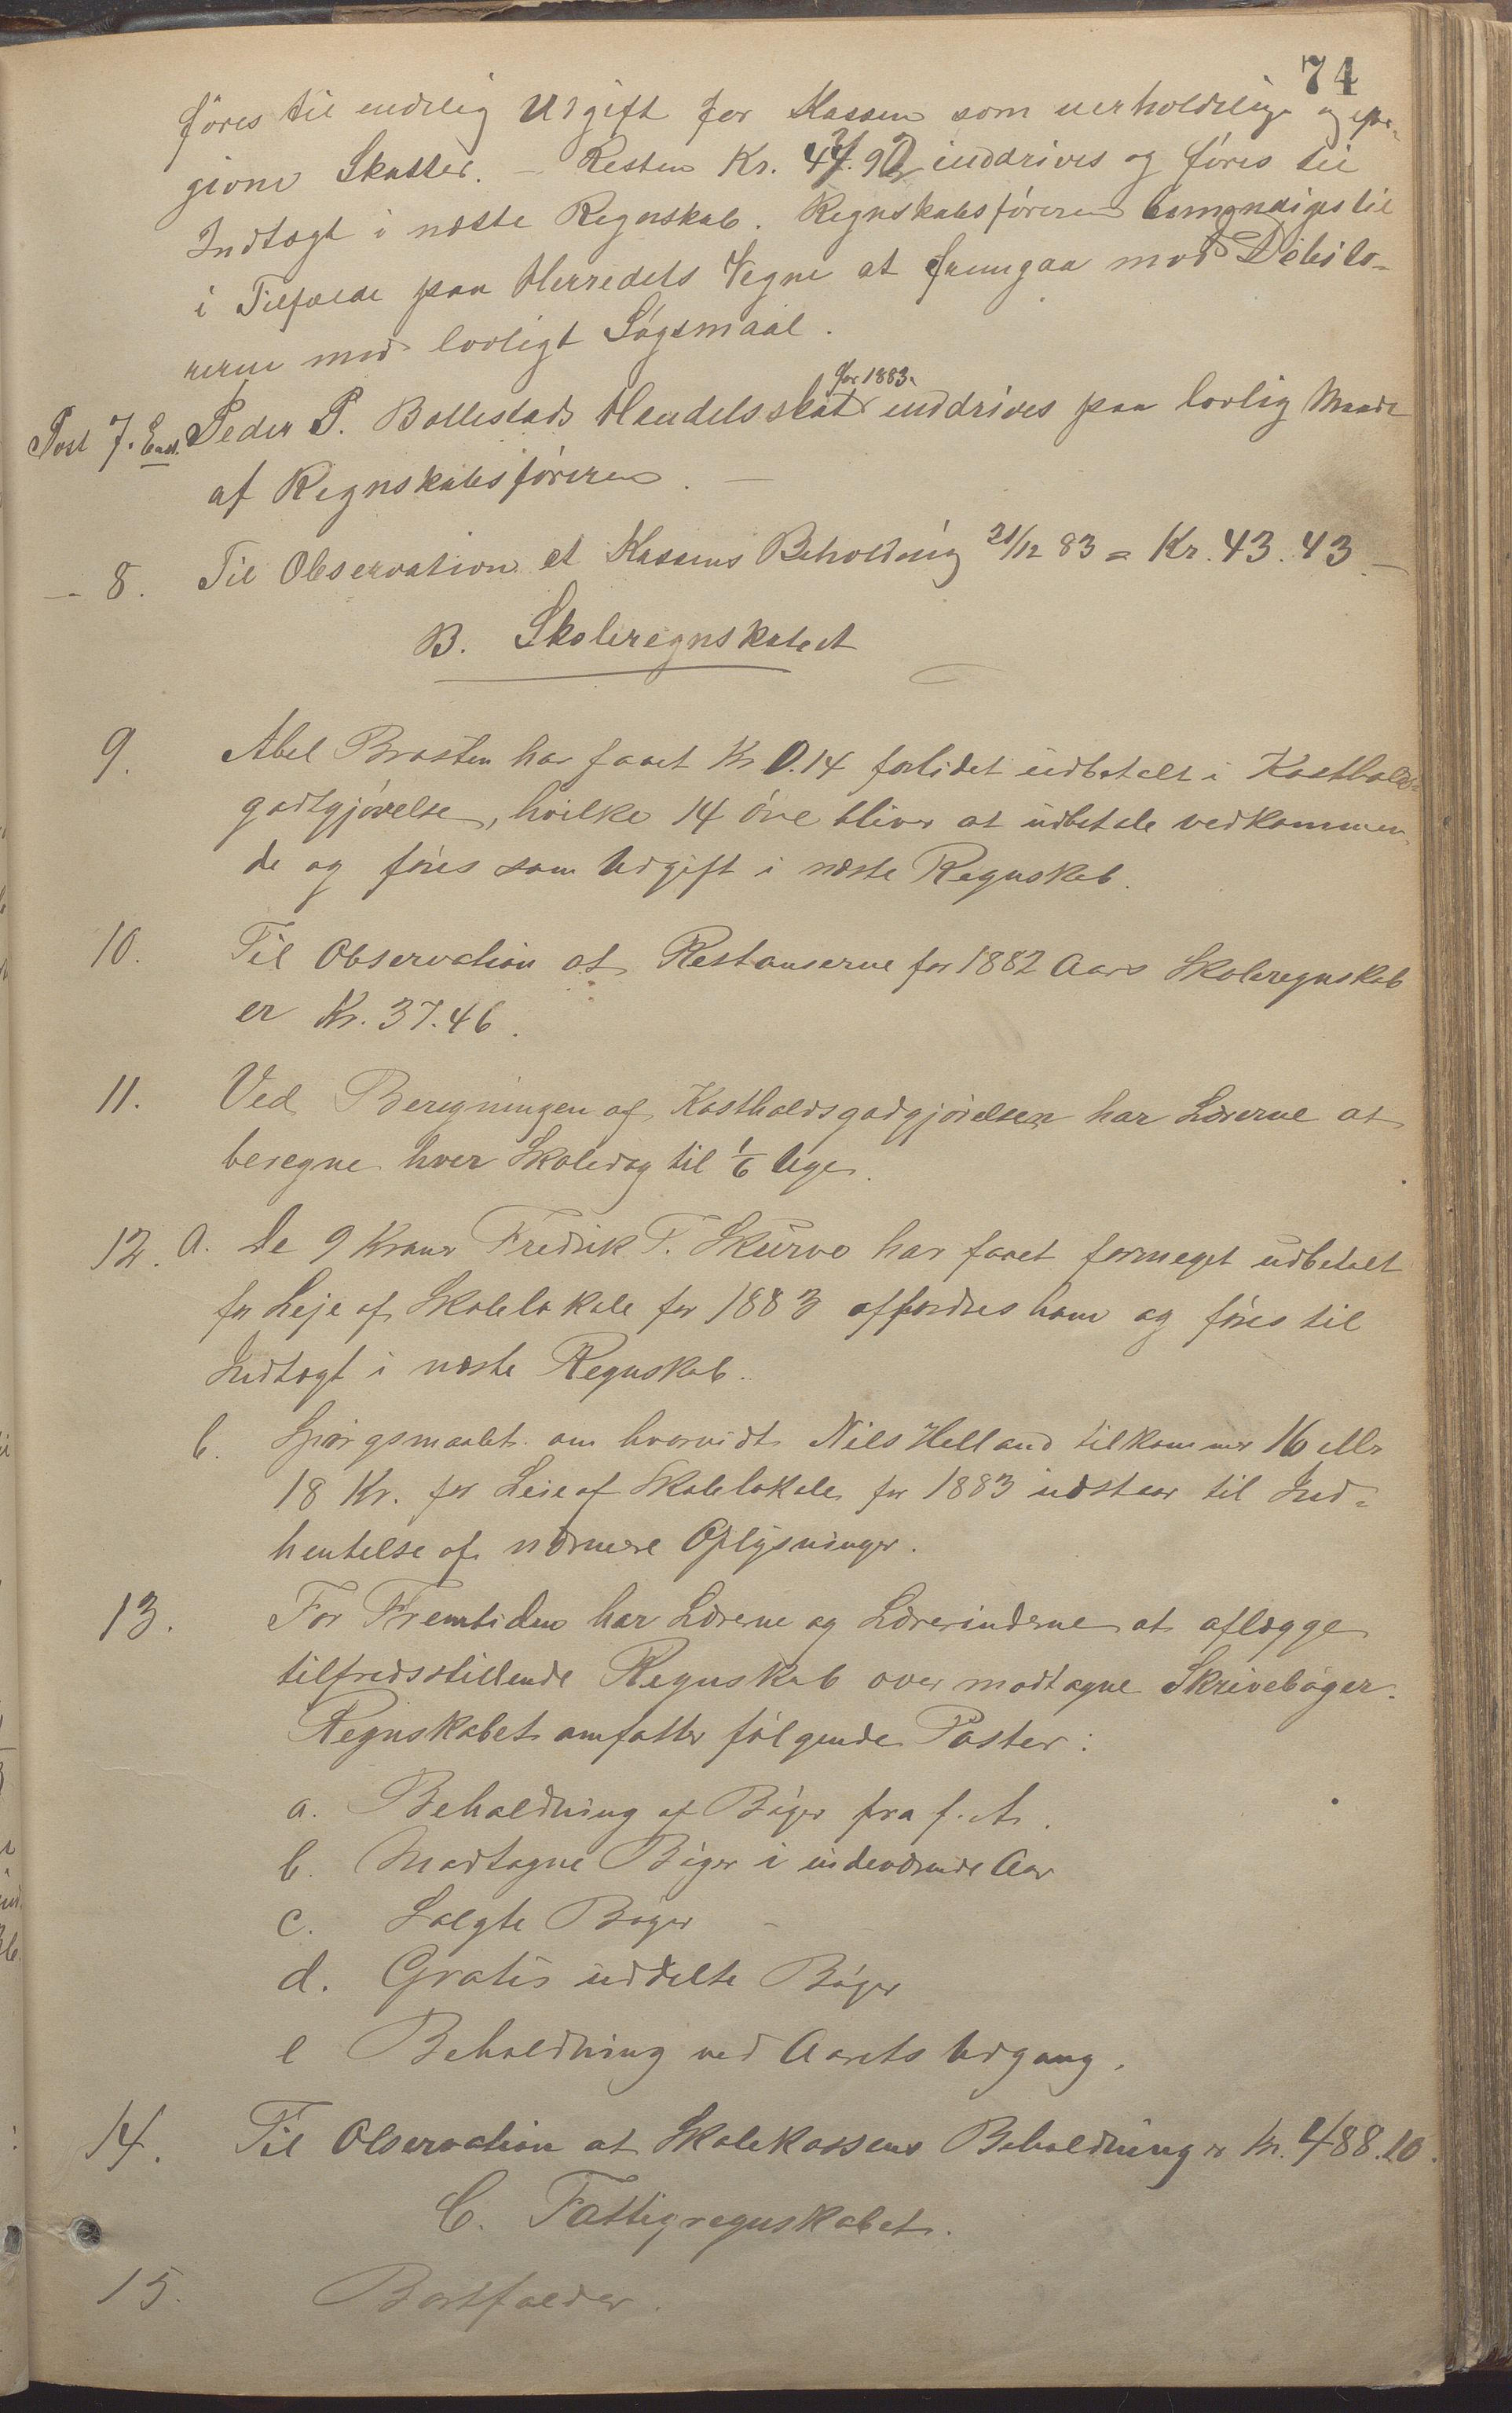 74
föres til endelig Udgift for Kassen som uerholdelige og efter-
givne Skatter. - Resten Kr. 47.92 inddrives og föres til
Indtægt i næste Regnskab. Regnskabsföreren bemyndiges til
i Tilfælde paa Herredets Vegne at fremgaa mod Debito-
rerne med lovligt Sögsmaal.
for 1883
Post 7. Peder P. Bollestads Handelsskat inddrives paa lovlig Maade
af Regnskabsföreren. -
- 8. Til Observation at Kassens Beholdning 31/12 83 = Kr. 43.43. -
B. Skoleregnskabet
9. Abel Brasten har faaet Kr 0.14 forlidet udbetalt i Kostholds-
godtgjörelse, hvilke 14 öre bliver at udbetale vedkommen-
de og föres som Udgift i næste Regnskab.
10. Til Observation at Restanserne for 1882 Aars Skoleregnskab
er Kr. 37.46.
11. Ved Beregningen af Kostholdsgodgjörelsen har Lærerne at
beregne hver Skoledag til 1/6 Uge.
12. a. De 9 Kroner Fredrik T. Skurve har faaet formeget udbetalt
for Leje af Skolelokale for 1883 affordres ham og föres til
Indtægt i næste Regnskab.
b. Spörgsmaalet om hvorvidt Nils Helland tilkommer 16 eller
18 Kr. for Leie af Skolelokale for 1883 udstaar til Ind-
hentelse af nærmere Oplysninger.
13. For Fremtiden har Lærerne og Lærerinderne at aflægge
tilfredsstillende Regnskab over modtagne Skriveböger.
Regnskabet omfatter fölgende Poster:
a. Beholdning af Böger fra f. A.
b. Modtagne Böger i indeværende Aar
c. Solgte Böger -
d. Gratis uddelte Böger
e Beholdning ved Aarets Udgang.
14. Til Observation at Skolekassens Beholdning er Kr. 488.10.
C. Fattigregnskabet.
15. Bortfalder.